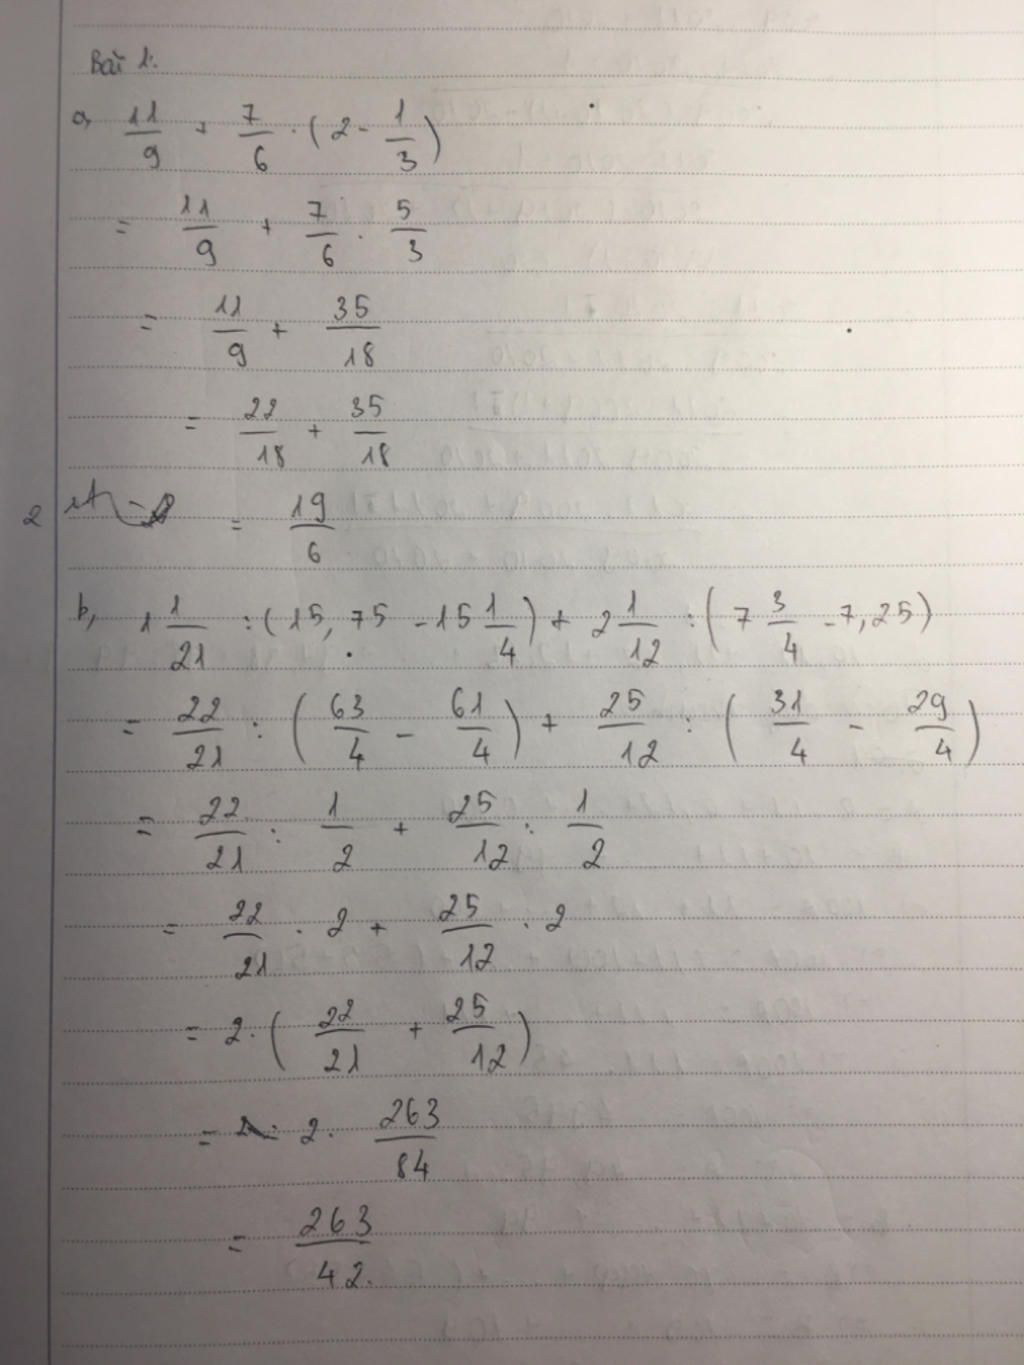 Bài 1:
a, 11/9 + 7/6 . (2 - 1/3)
= 11/9 + 7/6 . 5/3
= 11/9 + 35/18
= 22/18 + 35/18
2
= 19/6
b, 1 1/21 : (15,75 - 15 1/4) + 2 1/12 : (7 3/4 - 7,25)
= 22/21 : (63/4 - 61/4) + 25/12 : (31/4 - 29/4)
= 22/21 : 1/2 + 25/12 : 1/2
= 22/21 . 2 + 25/12 . 2
= 2. (22/21 + 25/12)
= 2. 263/84
= 263/42.